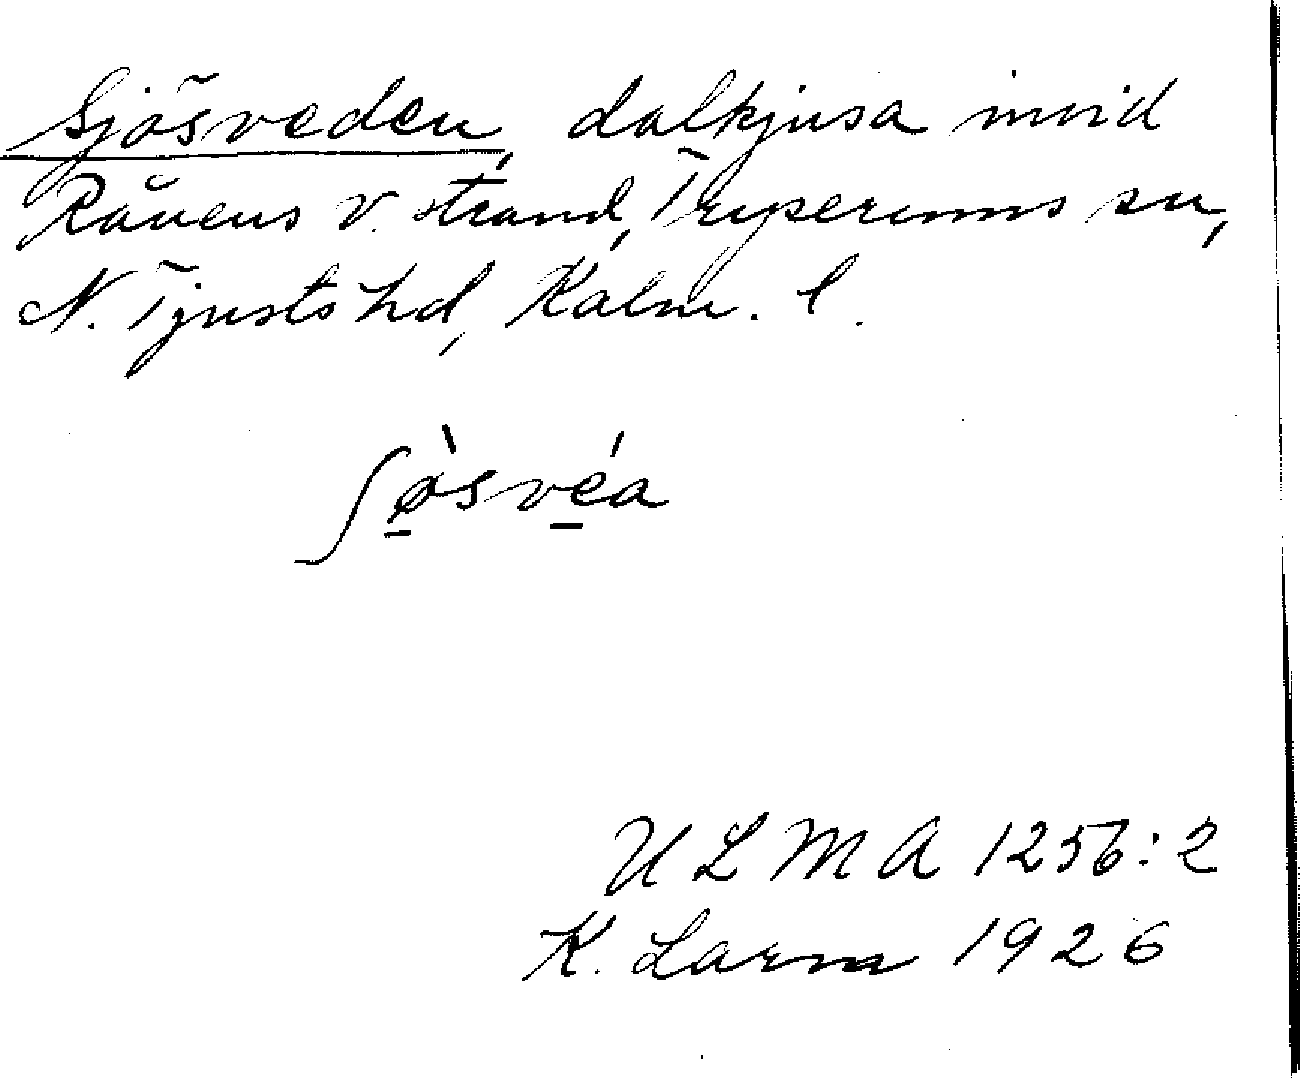 Sjösveden, dalkjusa invid
Råvens v. strand, Tryserums sn,
N. Tjusts hd, Kalm. l.
ʃø̠̀své̠a
ULMA 1256:2
K. Larm 1926